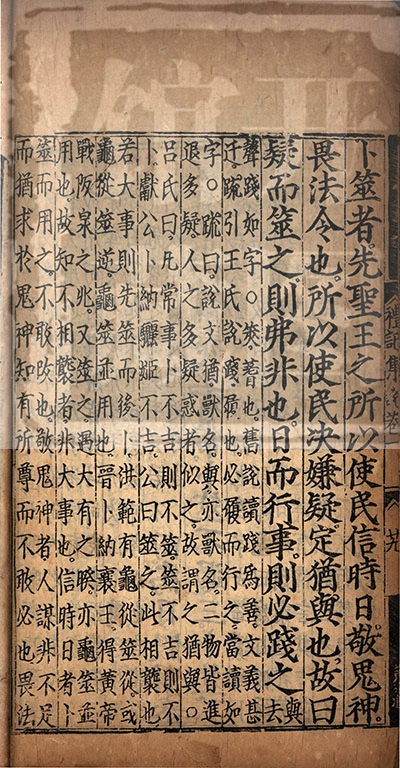 卜筮者。先聖王之所以使民信時日。敬鬼神。
畏法令也。所以使民決嫌疑。定猶與也。故曰
疑而筮之。則弗非也。日而行事。則必踐之與去
聲踐如字。筴蓍也。舊說讀踐爲善。文義甚
迂。疏引王氏說踐履也。必履而行之。當讀如
字。疏曰。說文猶獸名。與亦獸名。二物皆進
退多疑人之多疑惑者似之。故謂之猶與。
呂氏曰。凡常事卜不吉則不筮。筮不吉則不
卜。獻公卜納驪姬不吉。公曰筮之。此相襲也
若大事則先筮而後卜。洪範有龜從筮從。或
龜從筮逆。龜筮並用也。晉卜納襄王得黃帝
戰阪泉之兆。又筮之遇大有之睽。亦龜筮並
用也。故知不相襲者。非大事也。信時日者卜
筮而用之。不敢改也。敬鬼神者人謀非不足
而猶求於鬼神知有所尊而不敢必也畏法
禮記集說卷一